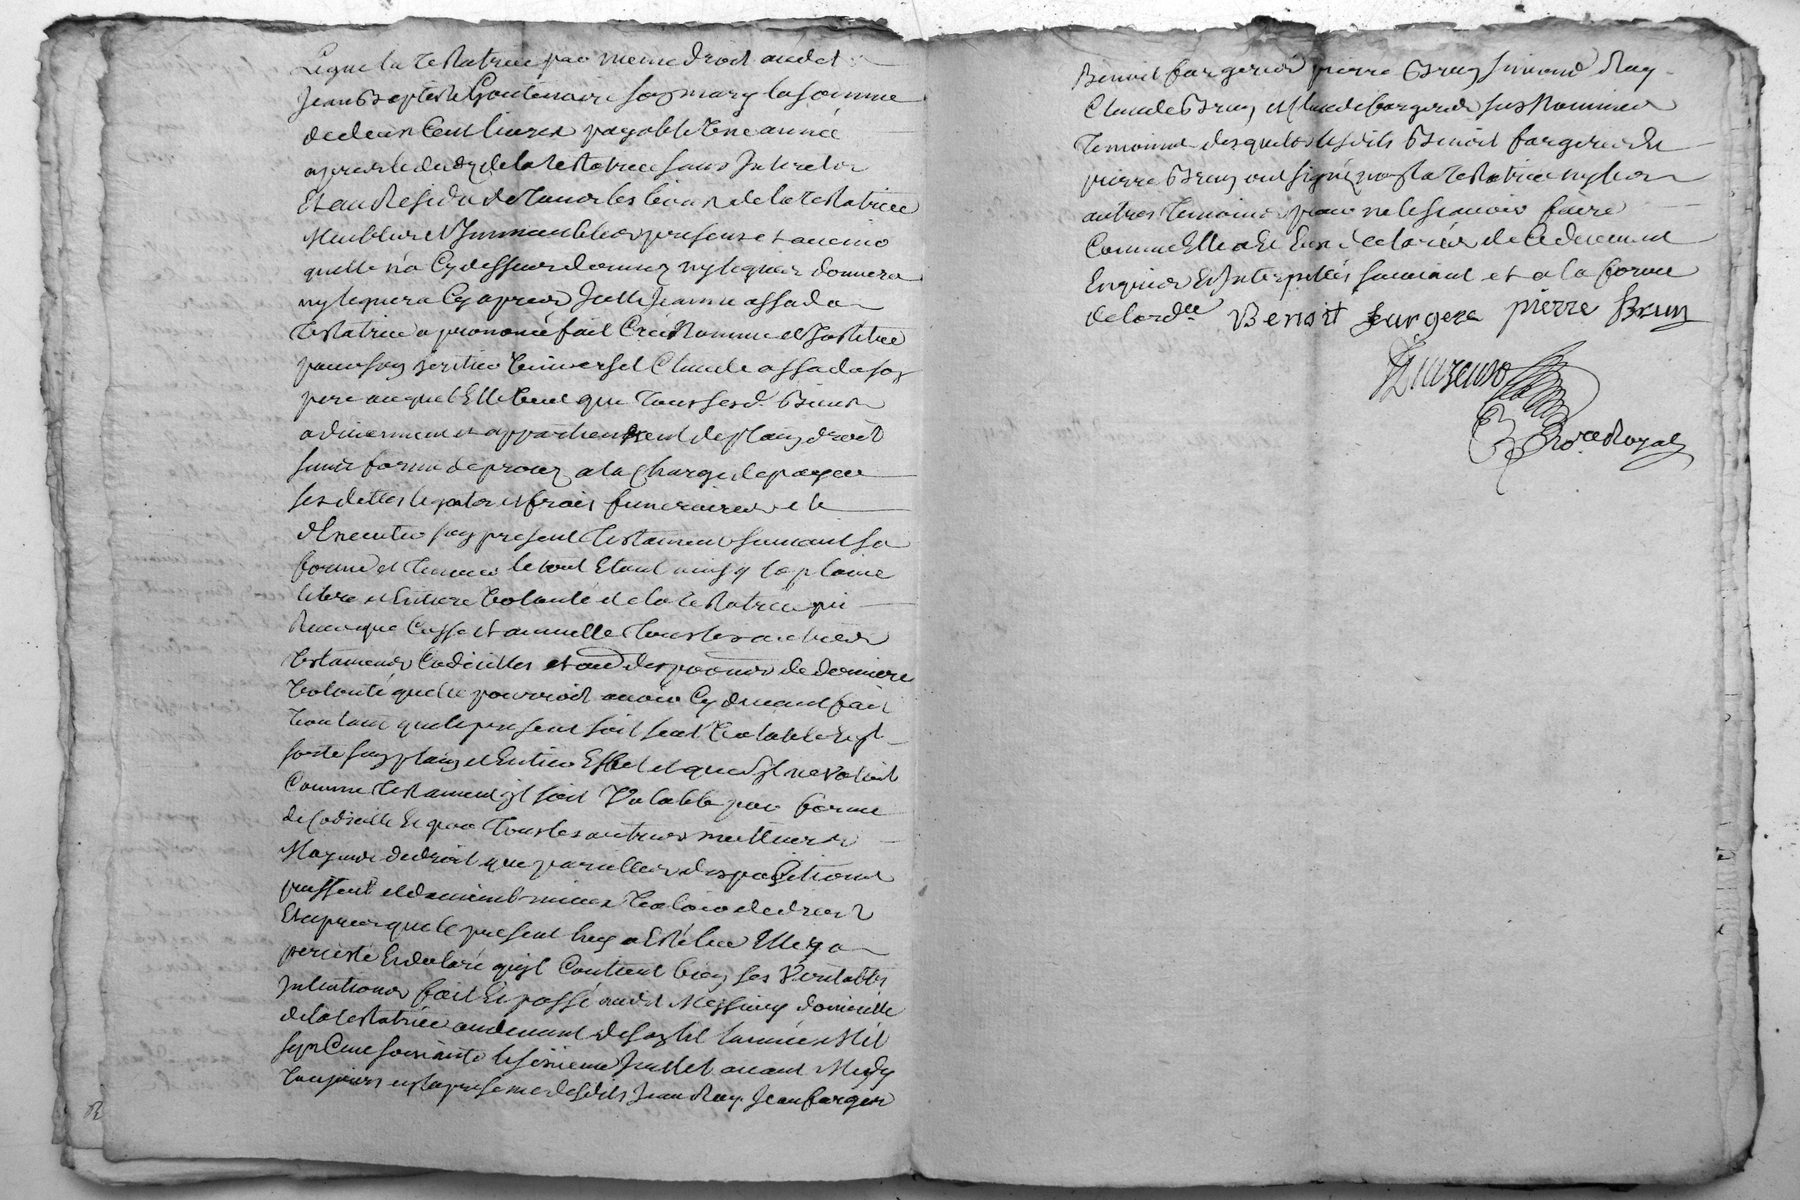 Legue la Testatrice par meme droit audit
Jean Baptiste Goutenoire son mary la somme
de deux Cent livres payable Une année
apres le deces de la Testatrice sans Interets
Et au Residu de Tous les biens de la Testatrice
Meubles et Immeubles presens et avenir
quelle n'a Cy dessus donnez ny leguez donnera
ny leguera Cy apres Icelle Jeanne assada
Testatrice a prononcé fait Créé Nommé et Institué
pour son heritier Universel Claude assada son
pere auquel Elle Veut que Tous sesd. Biens
adviennent et appartiennent de plain droit
sans forme de proces a la Charge de payer
ses dettes legats et frais funeraires et
d'Executer son present Testament suivant sa
forme et Teneur le tout Etant ainsy la plaine
libre et Entiere Volonté de la Testatrice qui
Revoque Casse et annulle Tous les autres
Testamens Codicilles et dispositions de derniere
Volonté quelle pourroit avoir Cy devant fait
Voulant que le present soit seul Valable Et qu'il
sorte son plain et Entier Effet et que s'il ne Valoit
Comme Testament qu'il soit Valable par forme
de Codicille Et par Tous les autres meilleurs
Moyens de droit que pareilles dispositions
puissent et doivent mieux Valoir de droit
Et apres que le present luy a Esté leu Elle y a
persisté Et declaré qu'il Contient bien ses Veritables
Intentions fait Et passé audit Messimy domicille
de la testatrice au devant de son lit l'année Mil
sept Cent soixante le sixieme Juillet avant Midy
Toujours en la presence desdits Jean Ray Jean fargere
Benoit fargere pierre Brun Simond Ray
Claude Brun et Claude fargere sus Nommés
Temoins desquels lesdits Benoit fargere Et
pierre Brun ont signé non la Testatrice ny les
autres Temoins pour ne le sçavoir faire
Comme Elle et Eux declarés de Ce duement
Enquis Et Interpellés suivant et a la forme
de l'ord.ce Benoit fargere pierre Brun
No.re Royal